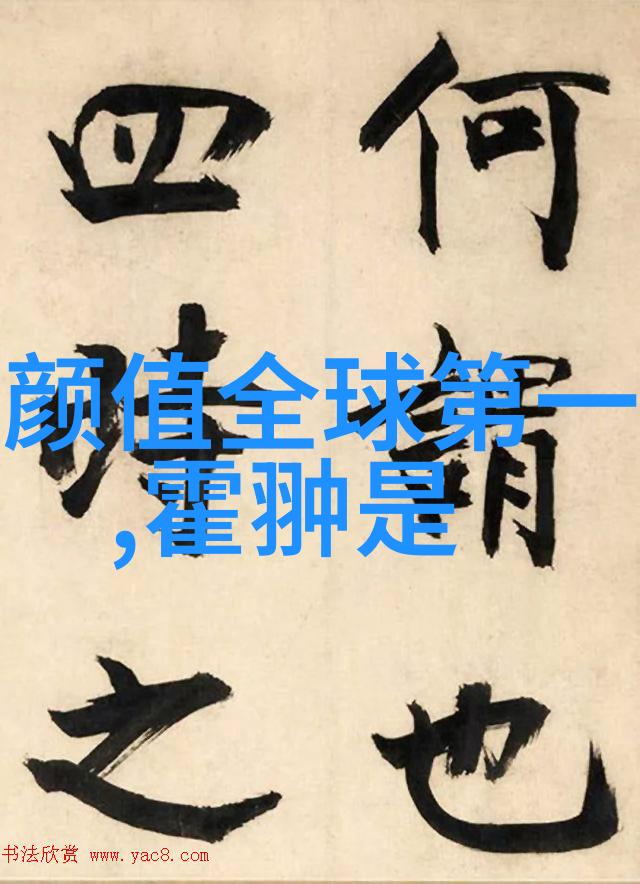 何謂也
四時之
颜值全球第一
,霍翀是
书法欣赏 www.yac8.com